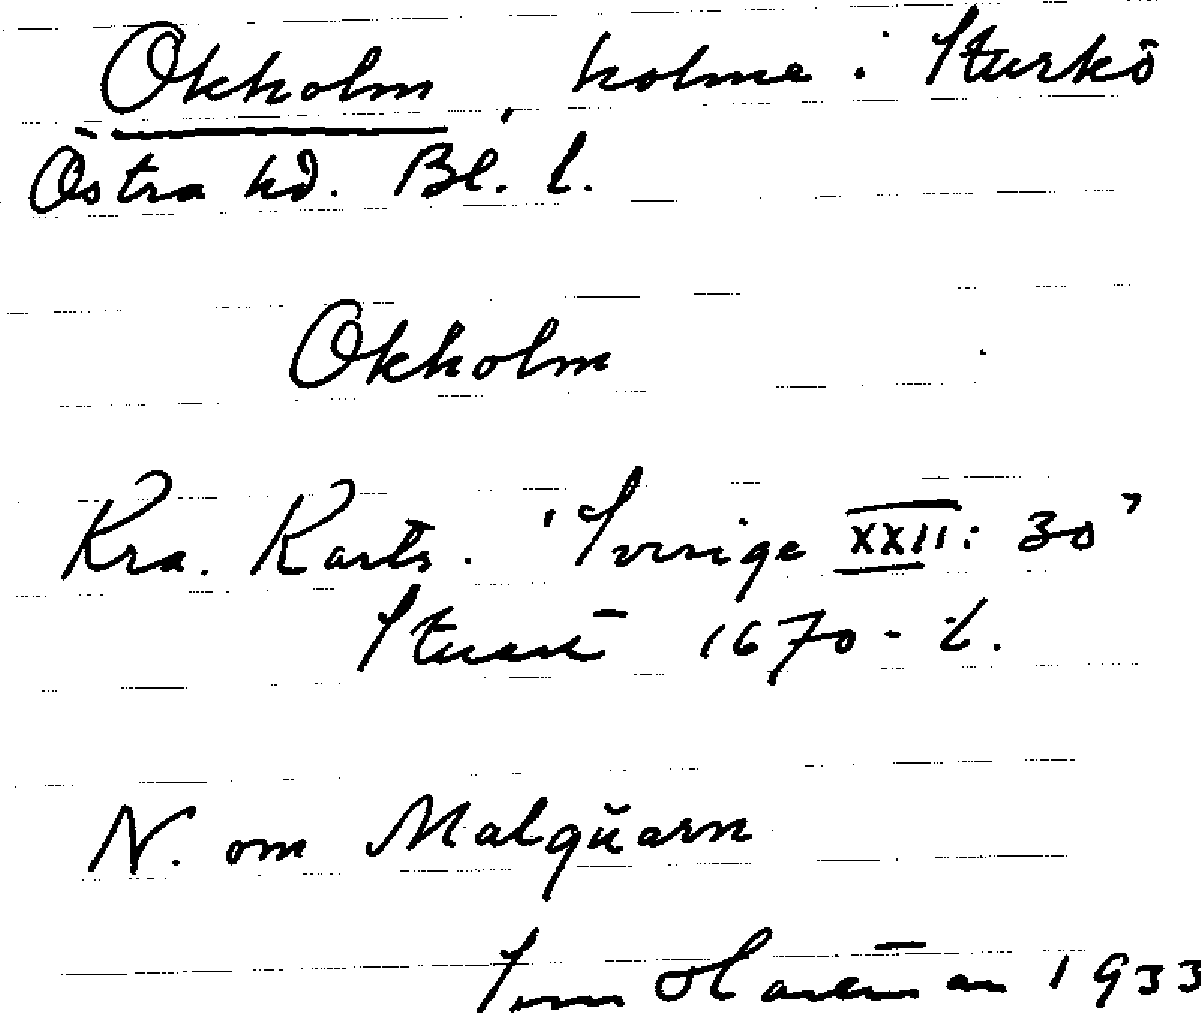 Okholm, holme i Sturkö
Östra hd. Bl. l.
Okholm
Kra. Karts. "Sverige XXII: 30"
1670-t.
N. om Malqŭarn
1933